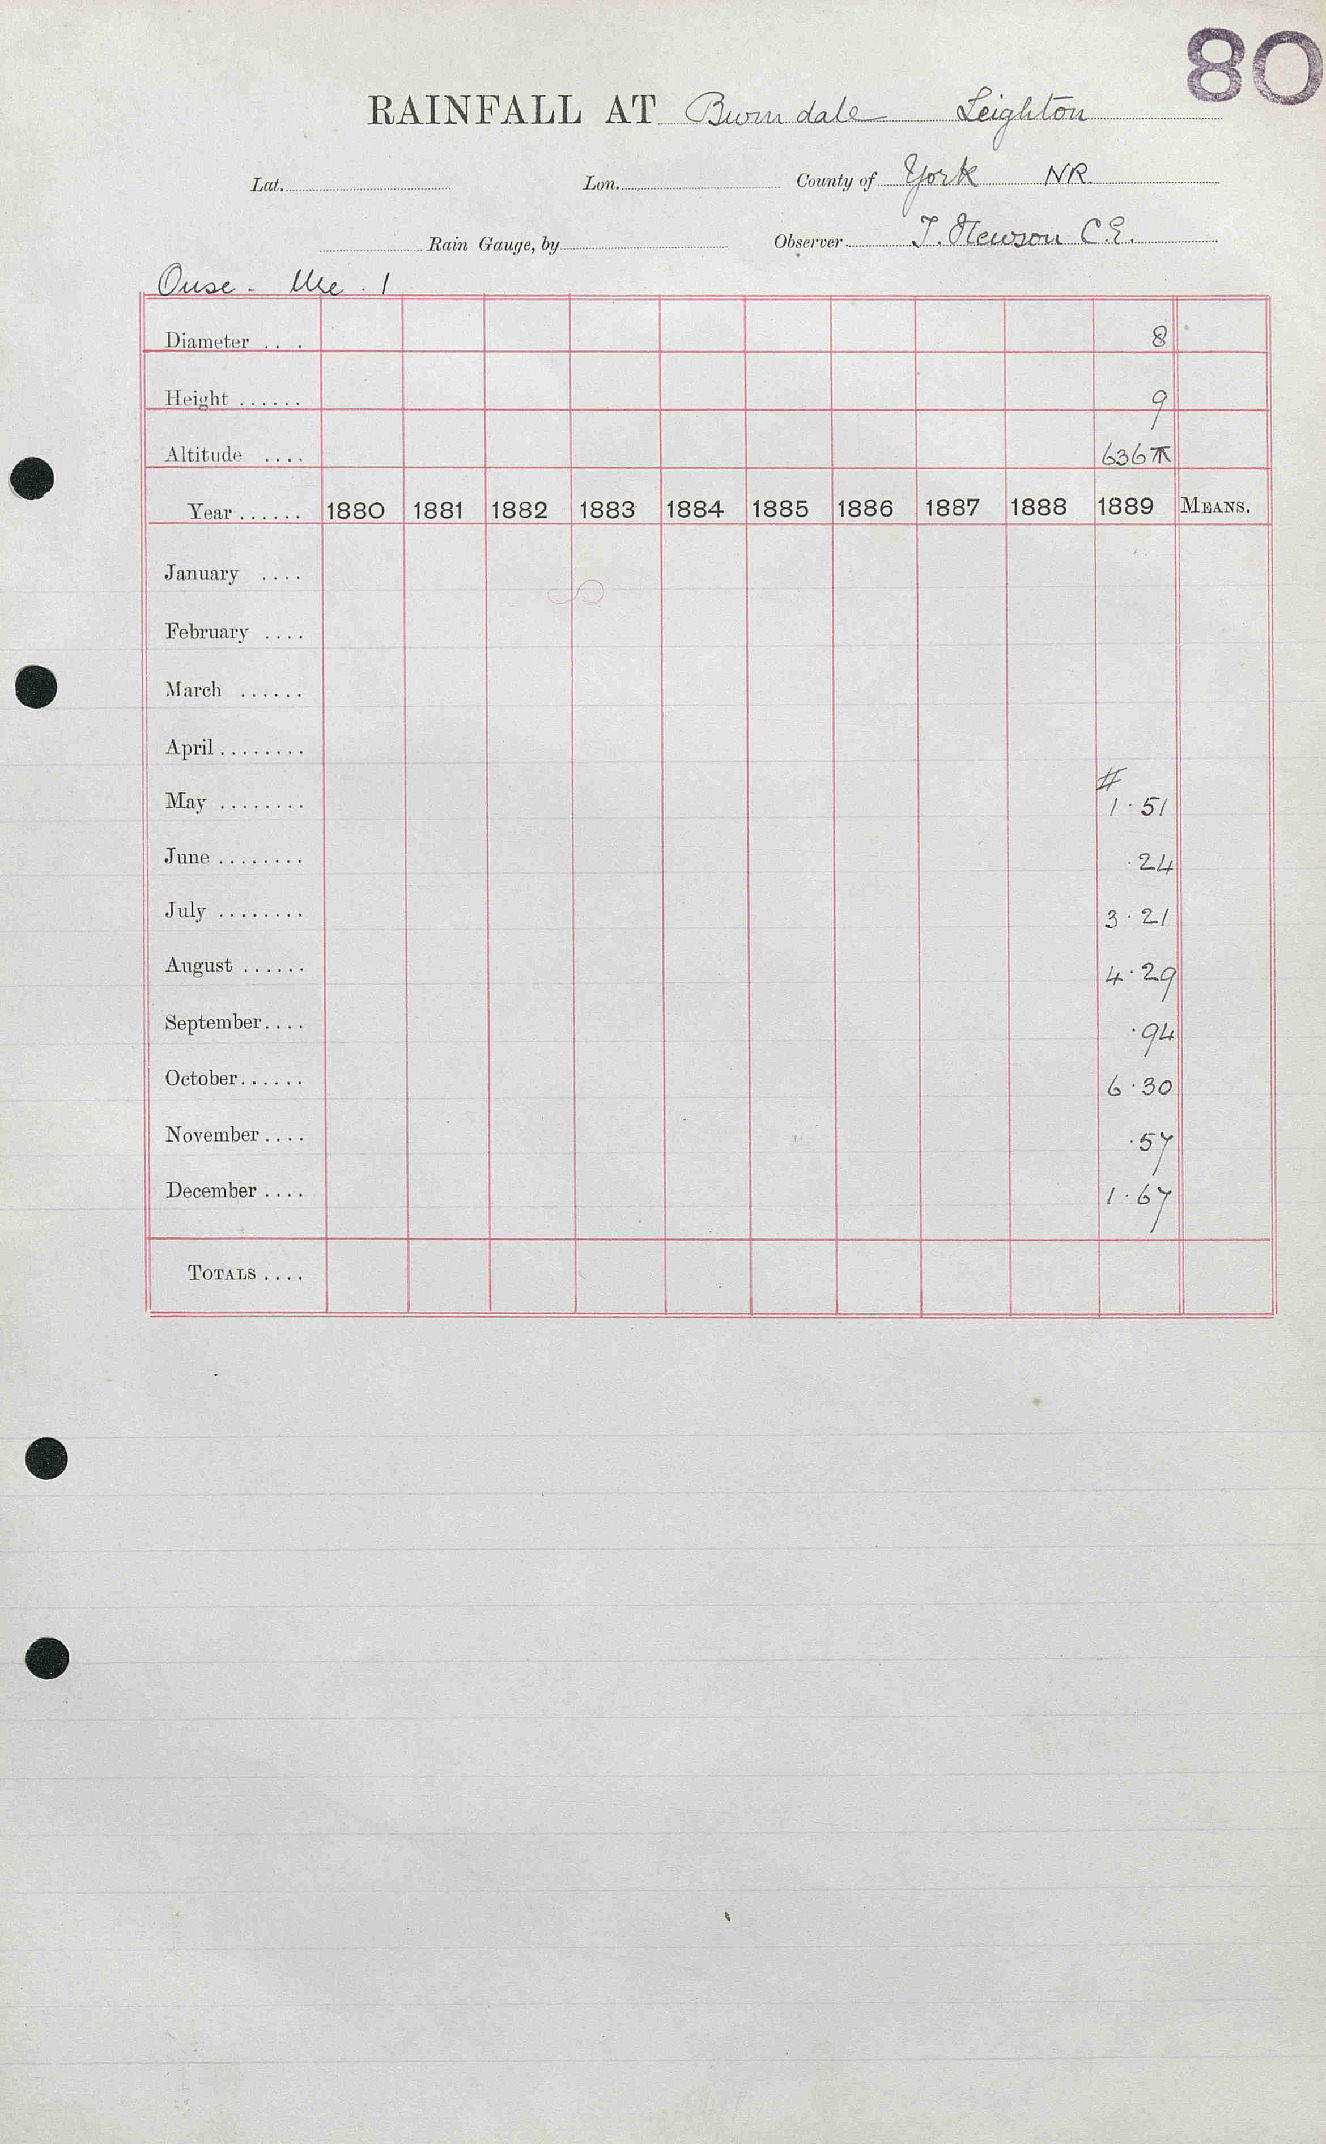 80
RAINFALL AT Burn dale Leighton
Lat. Lon. County of York NR
Rain Gauge, by Observer T. Hewson C.E.
Ouse - Ure . 1
Diameter .... 8
Height ...... 9
Altitude .... 636 T
Year ...... 1880 1881 1882 1883 1884 1885 1886 1887 1888 1889 MEANS.
January ....
February ....
March ......
April ........
#
May ........ 1.51
June ........ .24
July ........ 3.21
August ...... 4.29
September.... .94
October...... 6.30
November .... .57
December .... 1.67
TOTALS ....